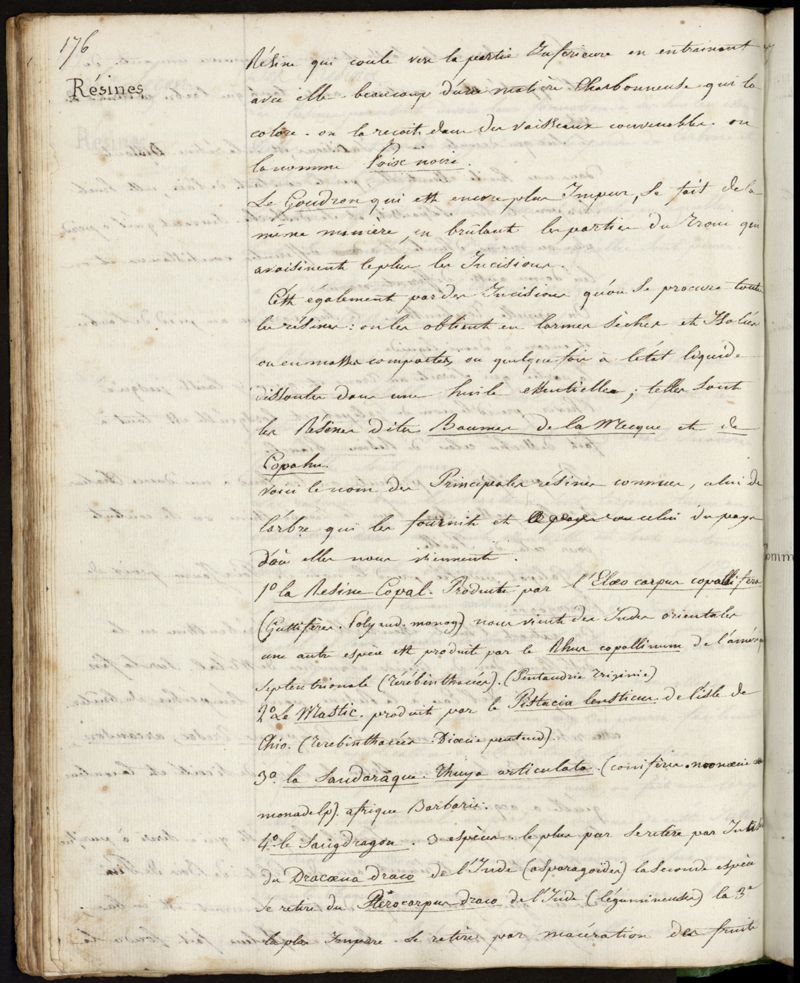 176
Résines
Résine qui coule vers la partie Inférieure en entrainant
avec elle beaucoup d'une matière Charbonneuse qui la
colore. on la recoit dans des vaisseaux convenable. on
la nomme Poix noire.
Le Goudron qui est encore plus Impur, se fait de la
même manière, en brûlant les parties du Tronc qui
avoisinent le plus les Incisions.
C'est également par des Incisions qu'on se procure toutes
les résines: on les obtient en larmes sèches et Isolées
ou en masses compactes, ou quelque fois à l'état liquide
dissoutes dans une huile essentielle; telles sont
les Résines dites Baumes de la Mecque et de
Copahu.
Voici le nom des Principales résines connues, celui de
l'arbre qui les fournit et celui du pays
d'où elles nous viennent.
1o la Resine Copal. Produite par l'Elæo carpus copallifera
(Guttifères. Polyand. monog) nous vient des Indes orientales
une autre espèce est produit par le Rhus copallinum de l'améri
Septentrionale (Terébinthacées). (Pentandrie Triginie)
2o Le Mastic. produit par le Pistacia lentiscus de l'isle de
Chio. (Terebinthacées. Dioecie pentand).
3o. la Sandaraque. Thuya articulata. (conifères. monoecie
monadelp). afrique Barbarie.
4o. le Sangdragon. 3 espèces. le plus pur se retire par Incis
du Dracæna draco de l'Inde (asparagoïdes) la seconde espèce
se retire du Pterocarpus draco de l'Inde (légumineuses) la 3e
la plus Impure se retire par macération des fruits
Comm